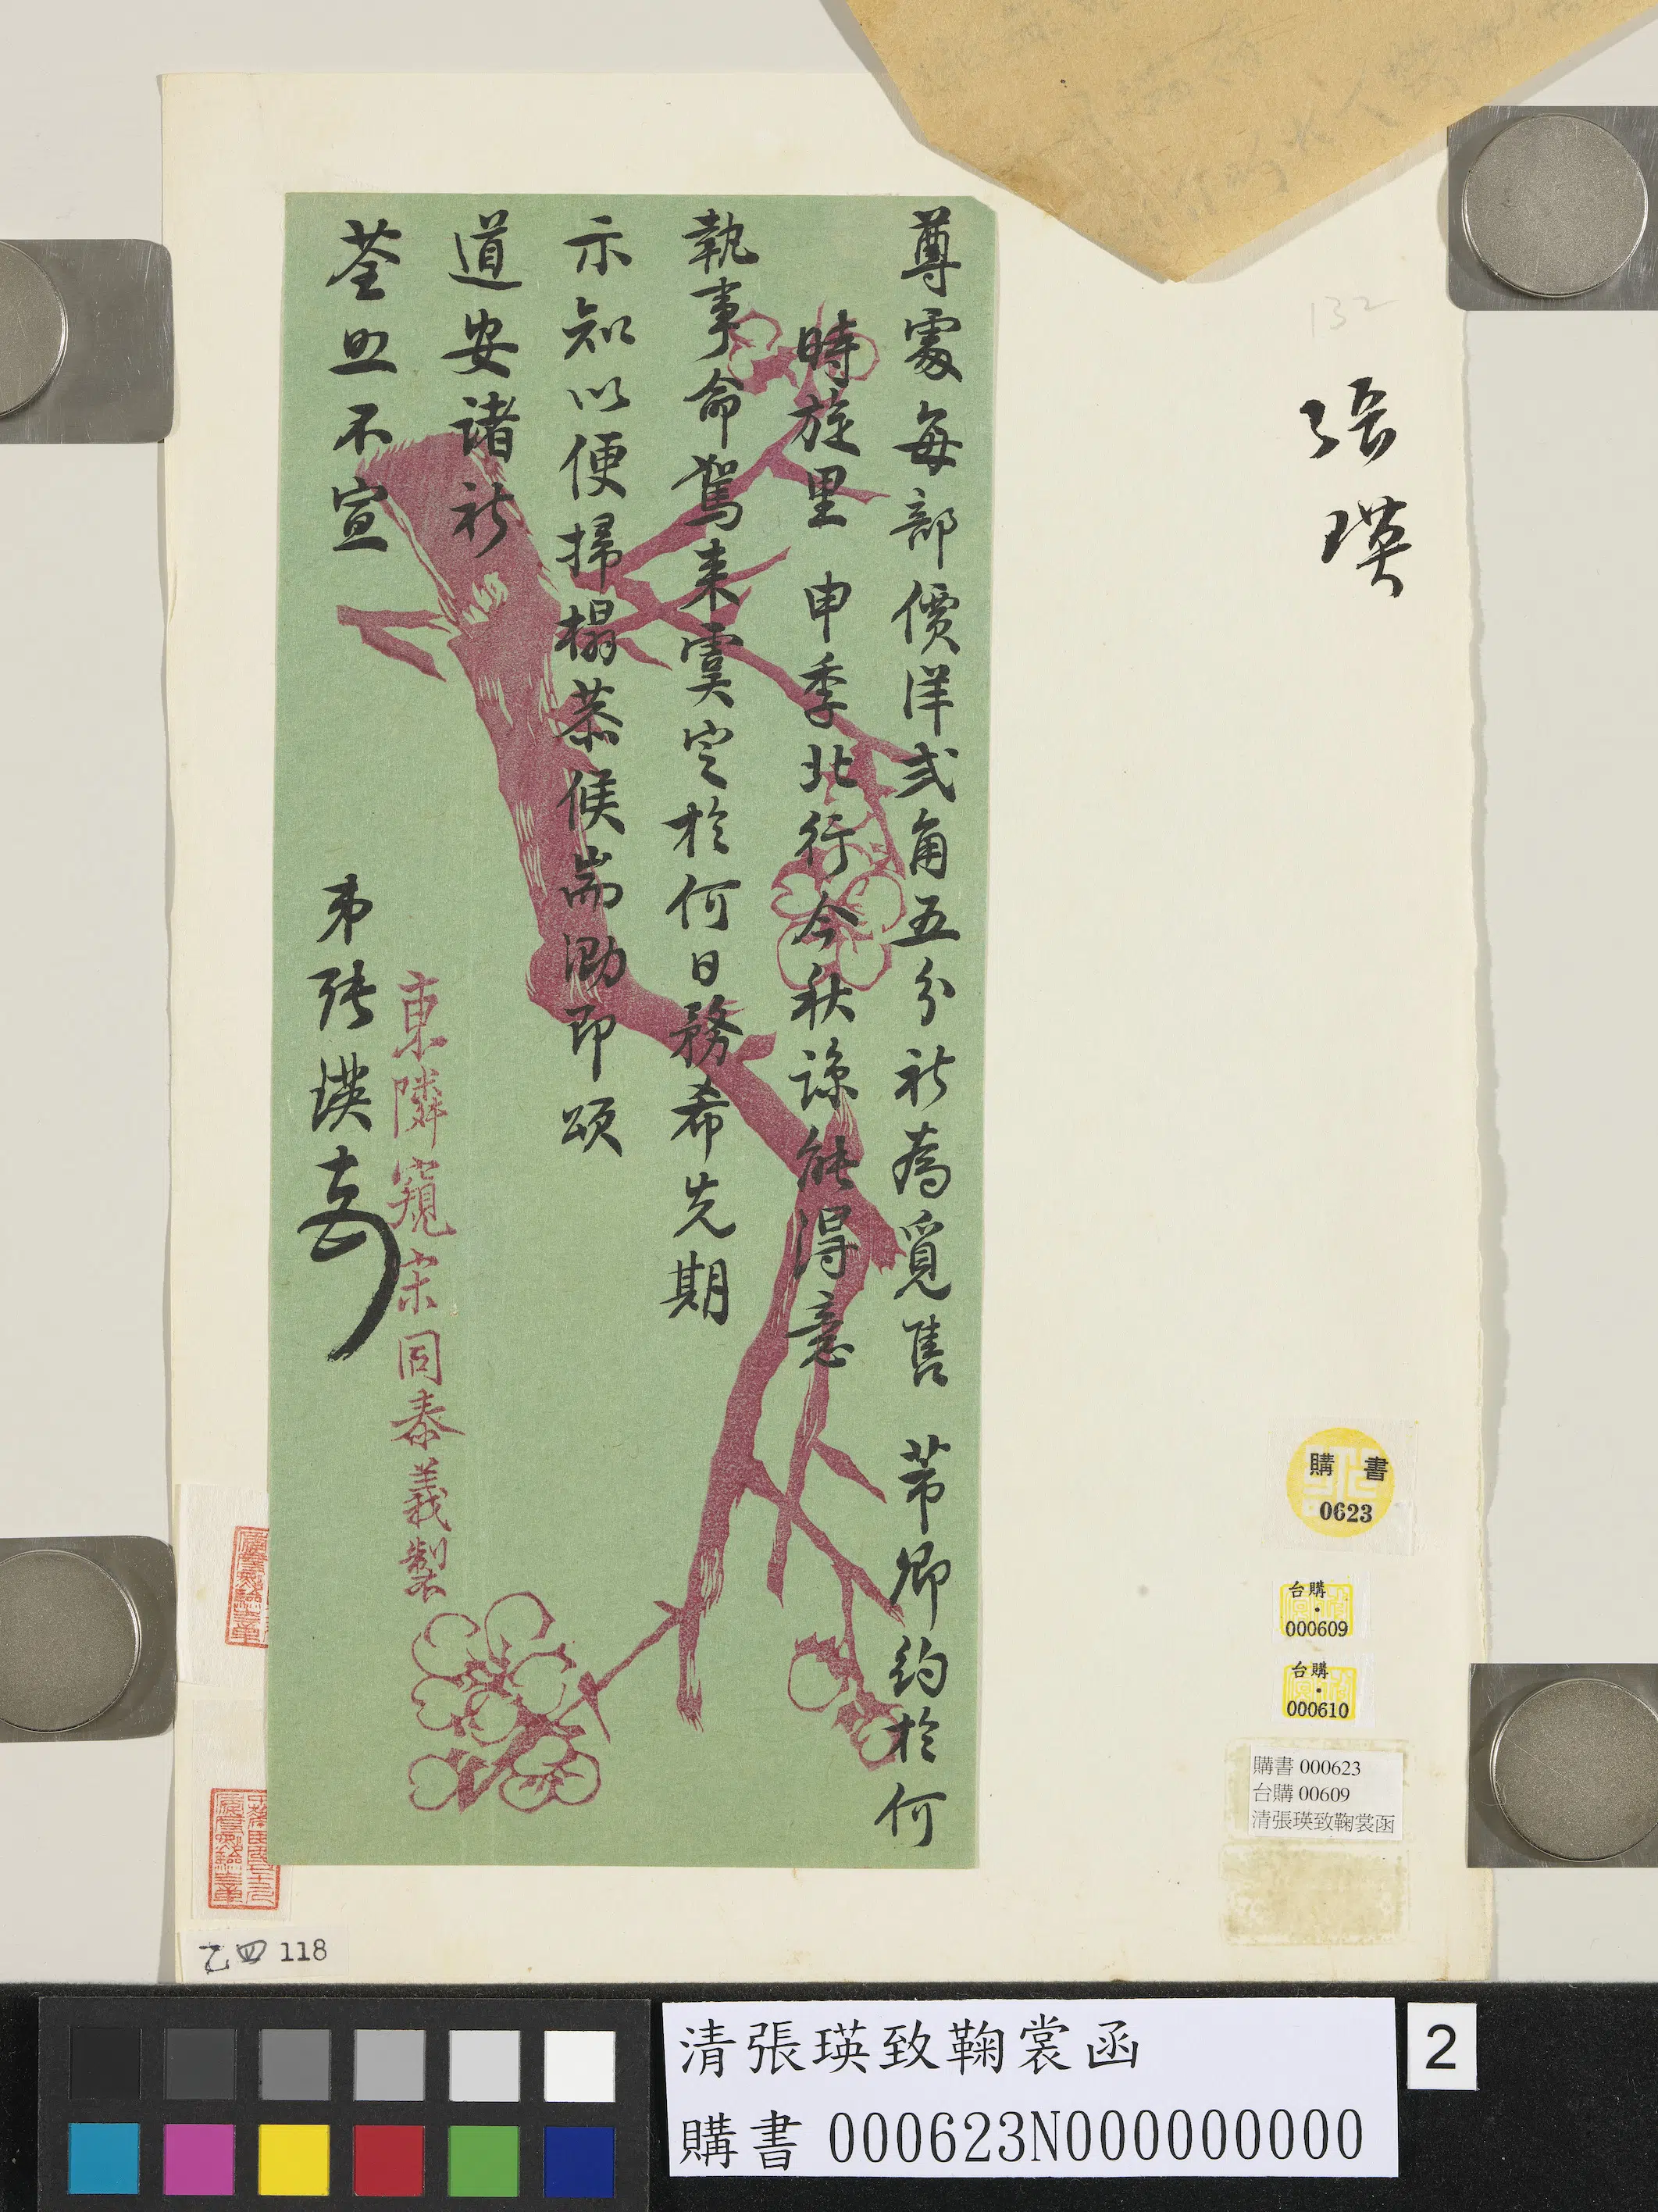 尊處每部價洋弍角五分祈為覓售 芾卿約於何
時旋里 申季北行今秋諒能得意
執事命駕來虞定於何日務希先期
示知以便掃榻恭候耑泐即頌
道安諸祈
荃照不宣
弟張瑛頓
東隣窺宋同泰義製
132
張瑛
購書
0623
台購
000609
台購
000610
購書 000623
台購 00609
清張瑛致鞠裳函
乙四 118
清張瑛致鞠裳函
購書 000623N000000000
2